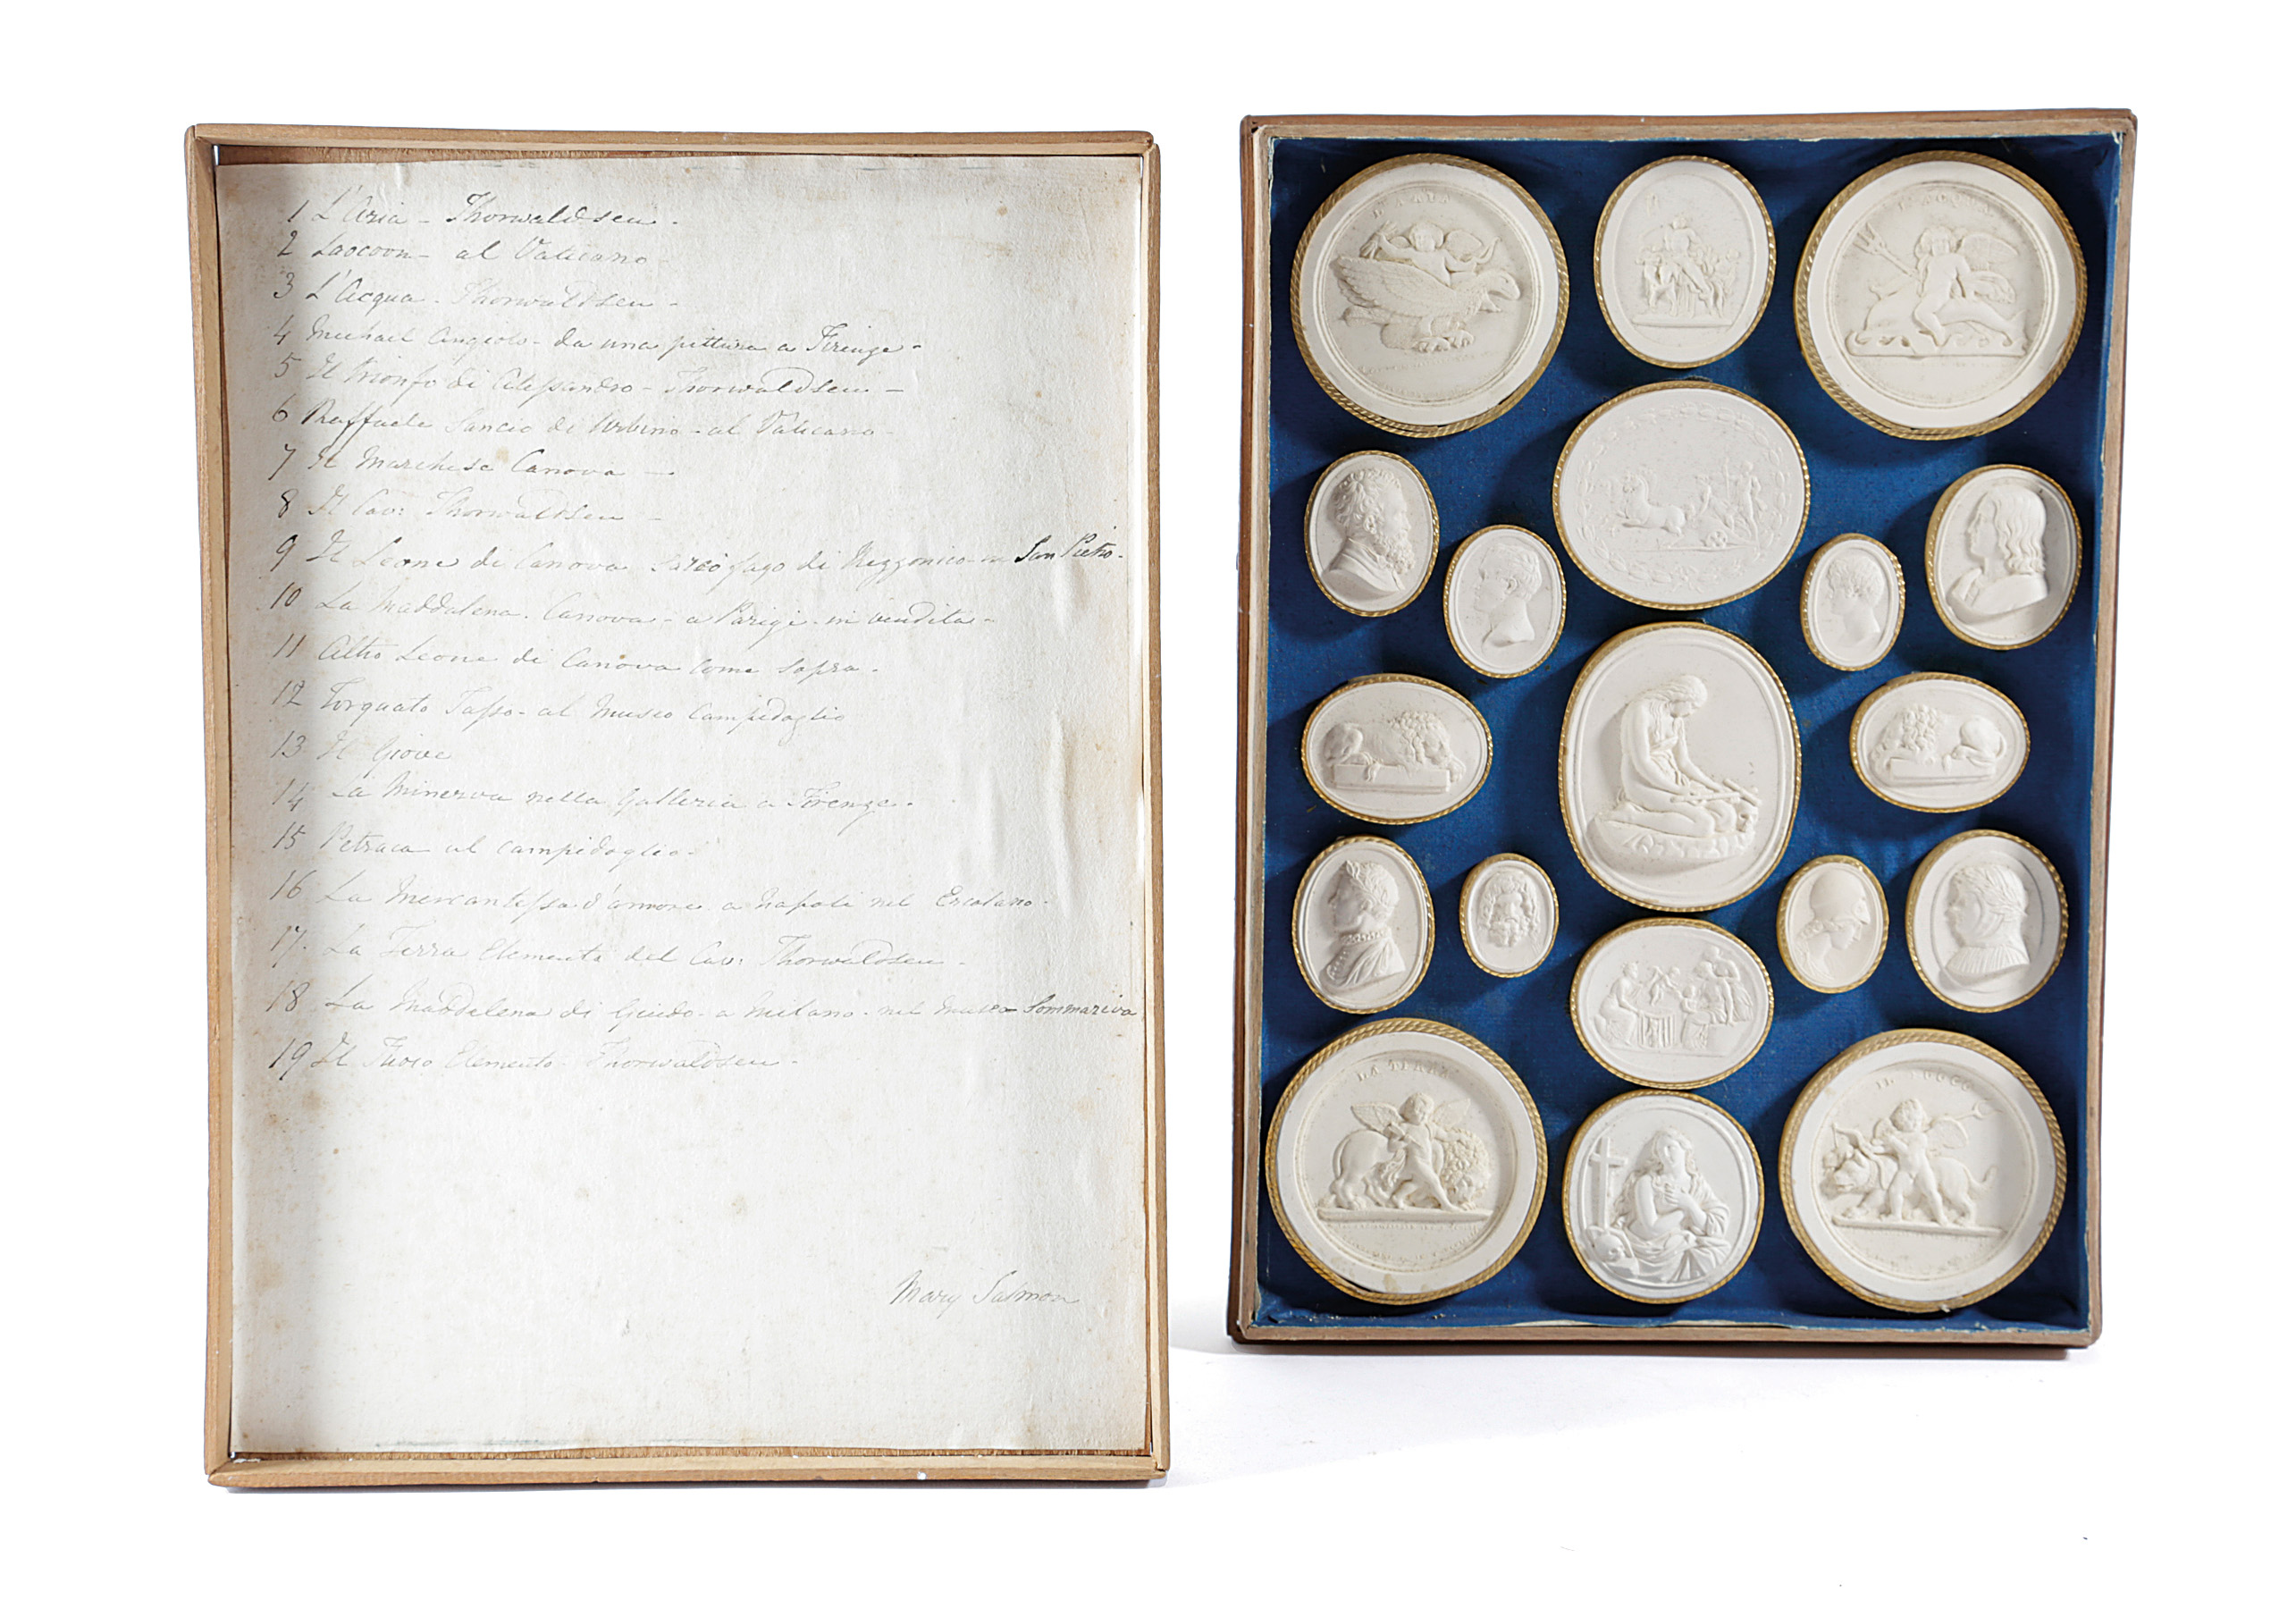 1 L'Aria - Thorwaldsen -
2 Laocoon - al Vaticano
3 L'Acqua - Thorwaldsen -
4 Michael Angiolo - da una pittura a Firenze -
5 Il trionfo di Alessandro - Thorwaldsen -
6 Raffaele Sancio di Urbino - al Vaticano -
7 Il Marchese Canova -
8 Il Cav: Thorwaldsen -
9 Il Leone di Canova sarcofago di Rezzonico in San Pietro -
10 La Maddalena - Canova - a Parigi - in vendita -
11 Altro Leone di Canova come sopra -
12 Torquato Tasso - al Museo Campidoglio
13 Il Giove
14 La Minerva nella Galleria a Firenze -
15 Petraca al Campidoglio -
16 La Mercantessa d'amore a Napoli nel Ercolano -
17. La Terra Elemento del Cav: Thorwaldsen -
18 La Maddelena di Guido - a Milano - nel Museo Sommariva
19 Il Elemento - Thorwaldsen -
Mary Salmon
L'ARIA
L'ACQUA
LA TERRA
IL FUOCO